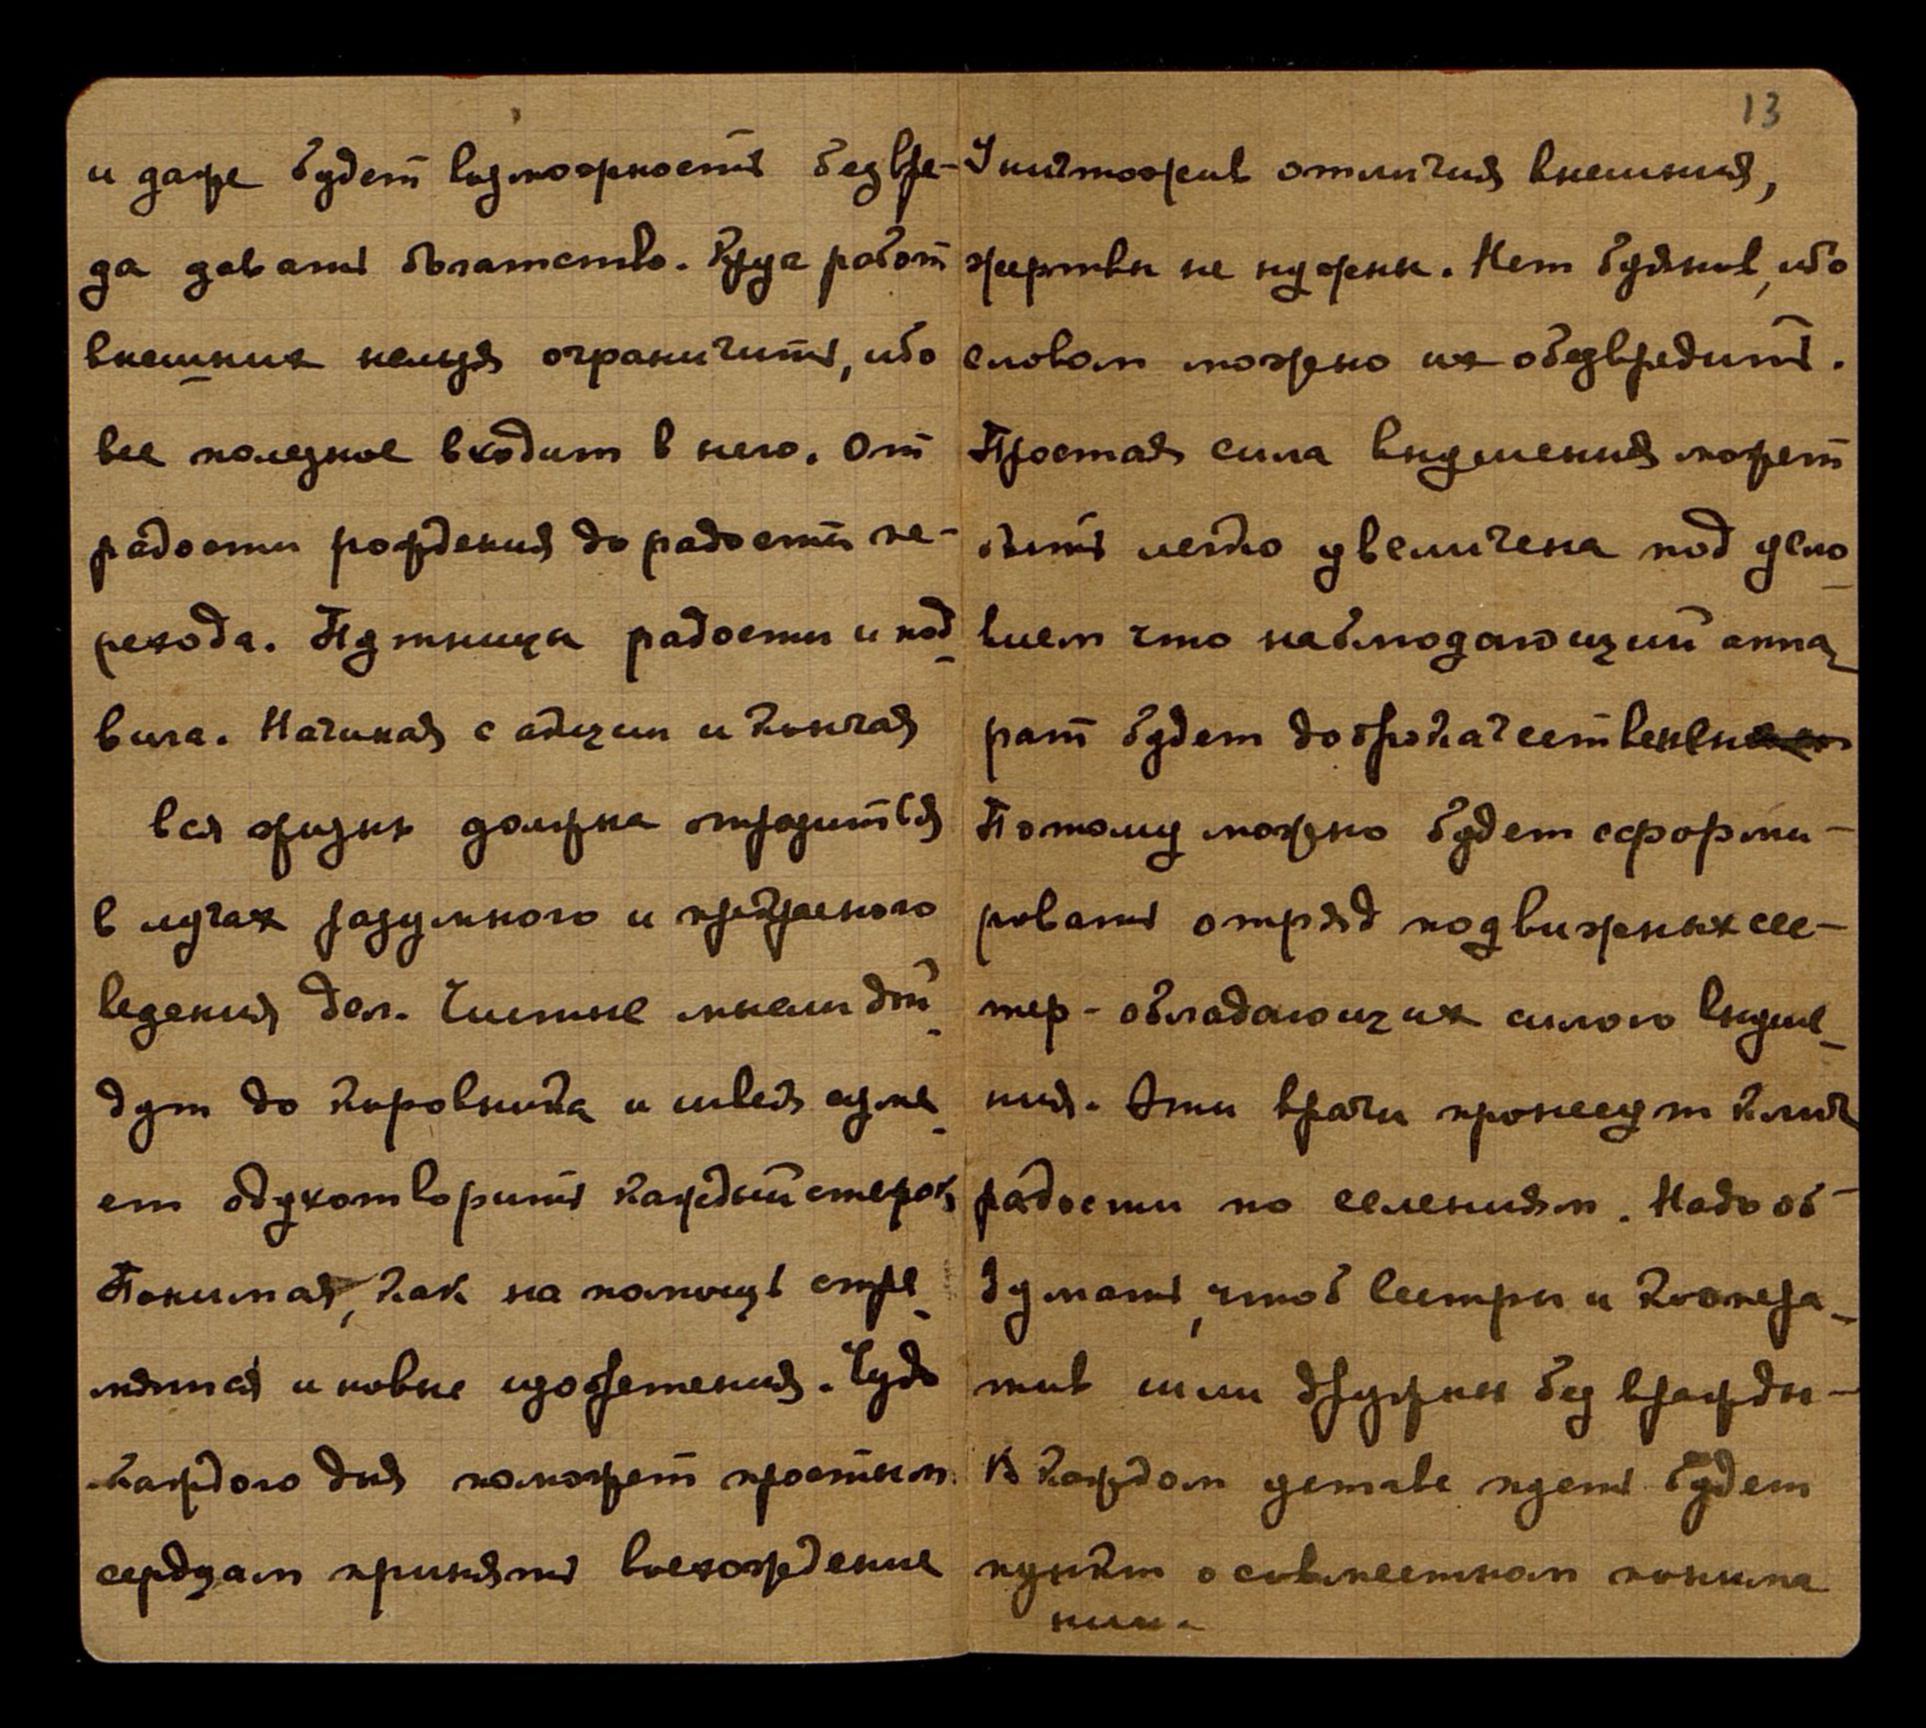 и даже будет возможность безвре-
да давать богатство. Круга работ
внешних нельзя ограничить, ибо
все полезное входит в него. От
радости рождения до радости пе-
рехода. Путницы радости и под
вига. Начиная с и кончая
вся жизнь должна отразиться
в лучах разумного и прекрасного
ведения дел. Чистые мысли дой
дут до коровника и швея суме
ет одухотворить каждый стежок
Понимая, как на помощь стре
мятся и новые изобретения. Чудо
каждого дня поможет простым
сердцам принять восхождение
13
Уничтожив отличия внешния,
жертвы не нужны. Нет буянов, ибо
словом можно их обезвредить.
Простая сила внушения может
быть легко увеличена под усло
вием что наблюдающий аппа
рат будет доброкачественен
Потому можно будет сформи-
ровать отряд подвижных сес-
тер - обладающих силою внуше
ния. Эти врачи пронесут клич
радости по селениям. Надо об
думать, чтоб сестры и коопера
тив шли дружны без вражды -
В каждом уставе пусть будет
пункт о совместном понима
нии.